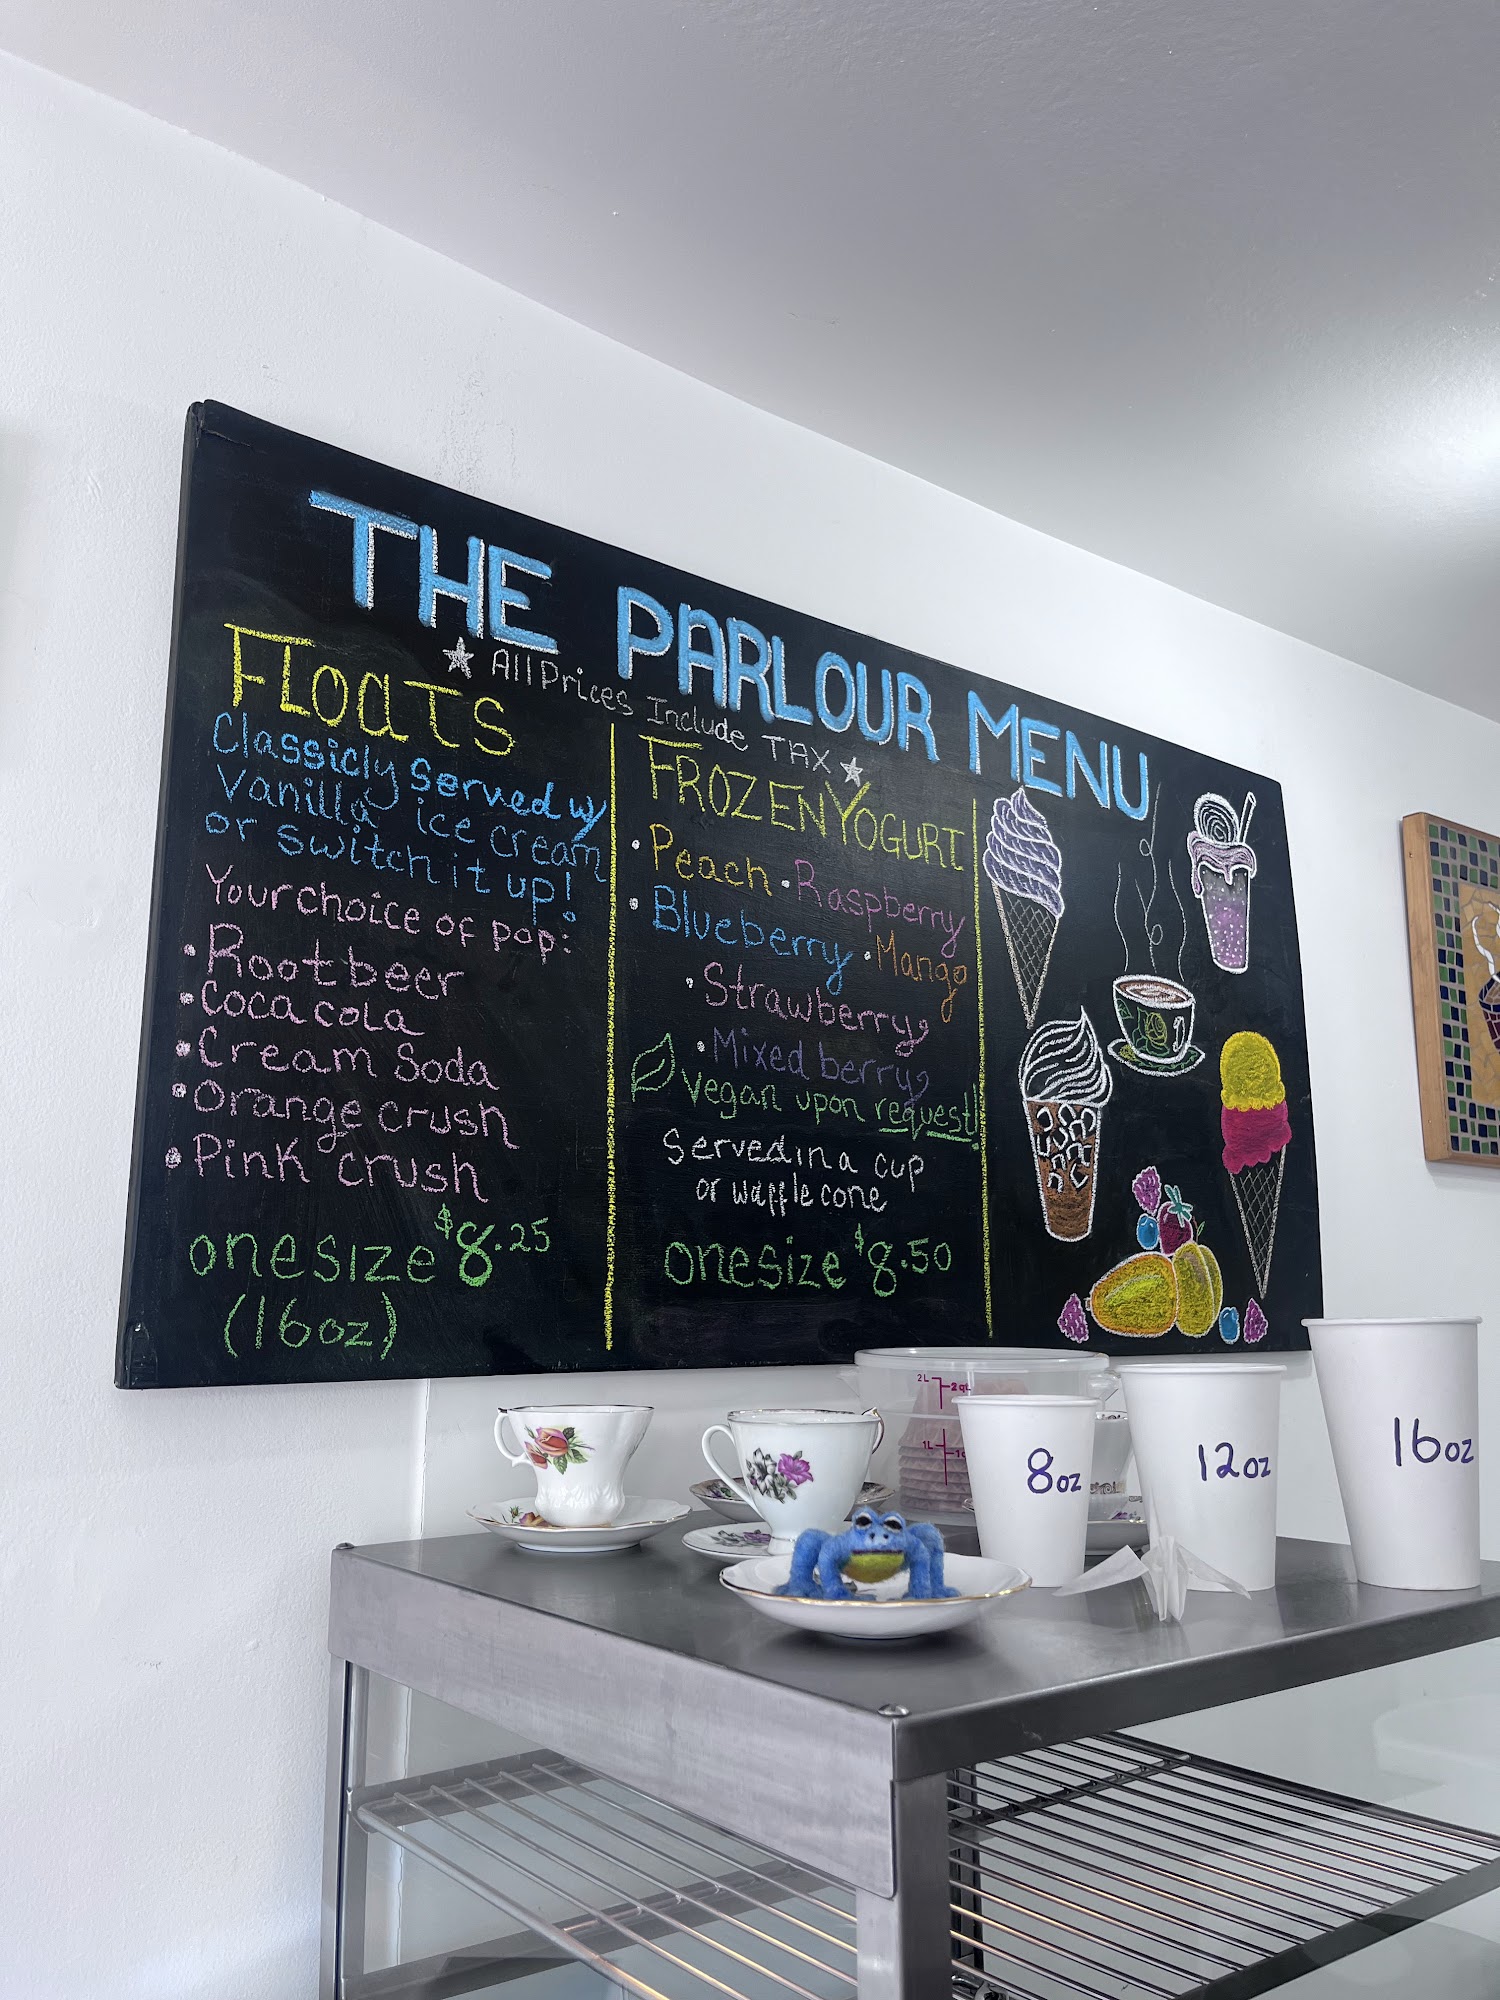 THE PARLOUR MENU
All Prices Include TAX
FLOATS
Classicly served w/
Vanilla ice cream
or switch it up!
Your choice of pop:
• Root beer
• Coca cola
• Cream Soda
• Orange crush
• Pink crush
one size $8.25
(16oz)
FROZEN YOGURT
• Peach • Raspberry
• Blueberry • Mango
• Strawberry
• Mixed berry
Vegan upon request!
Served in a cup
or waffle cone
one size $8.50
2L 2qt
1L
8oz
12oz
16oz